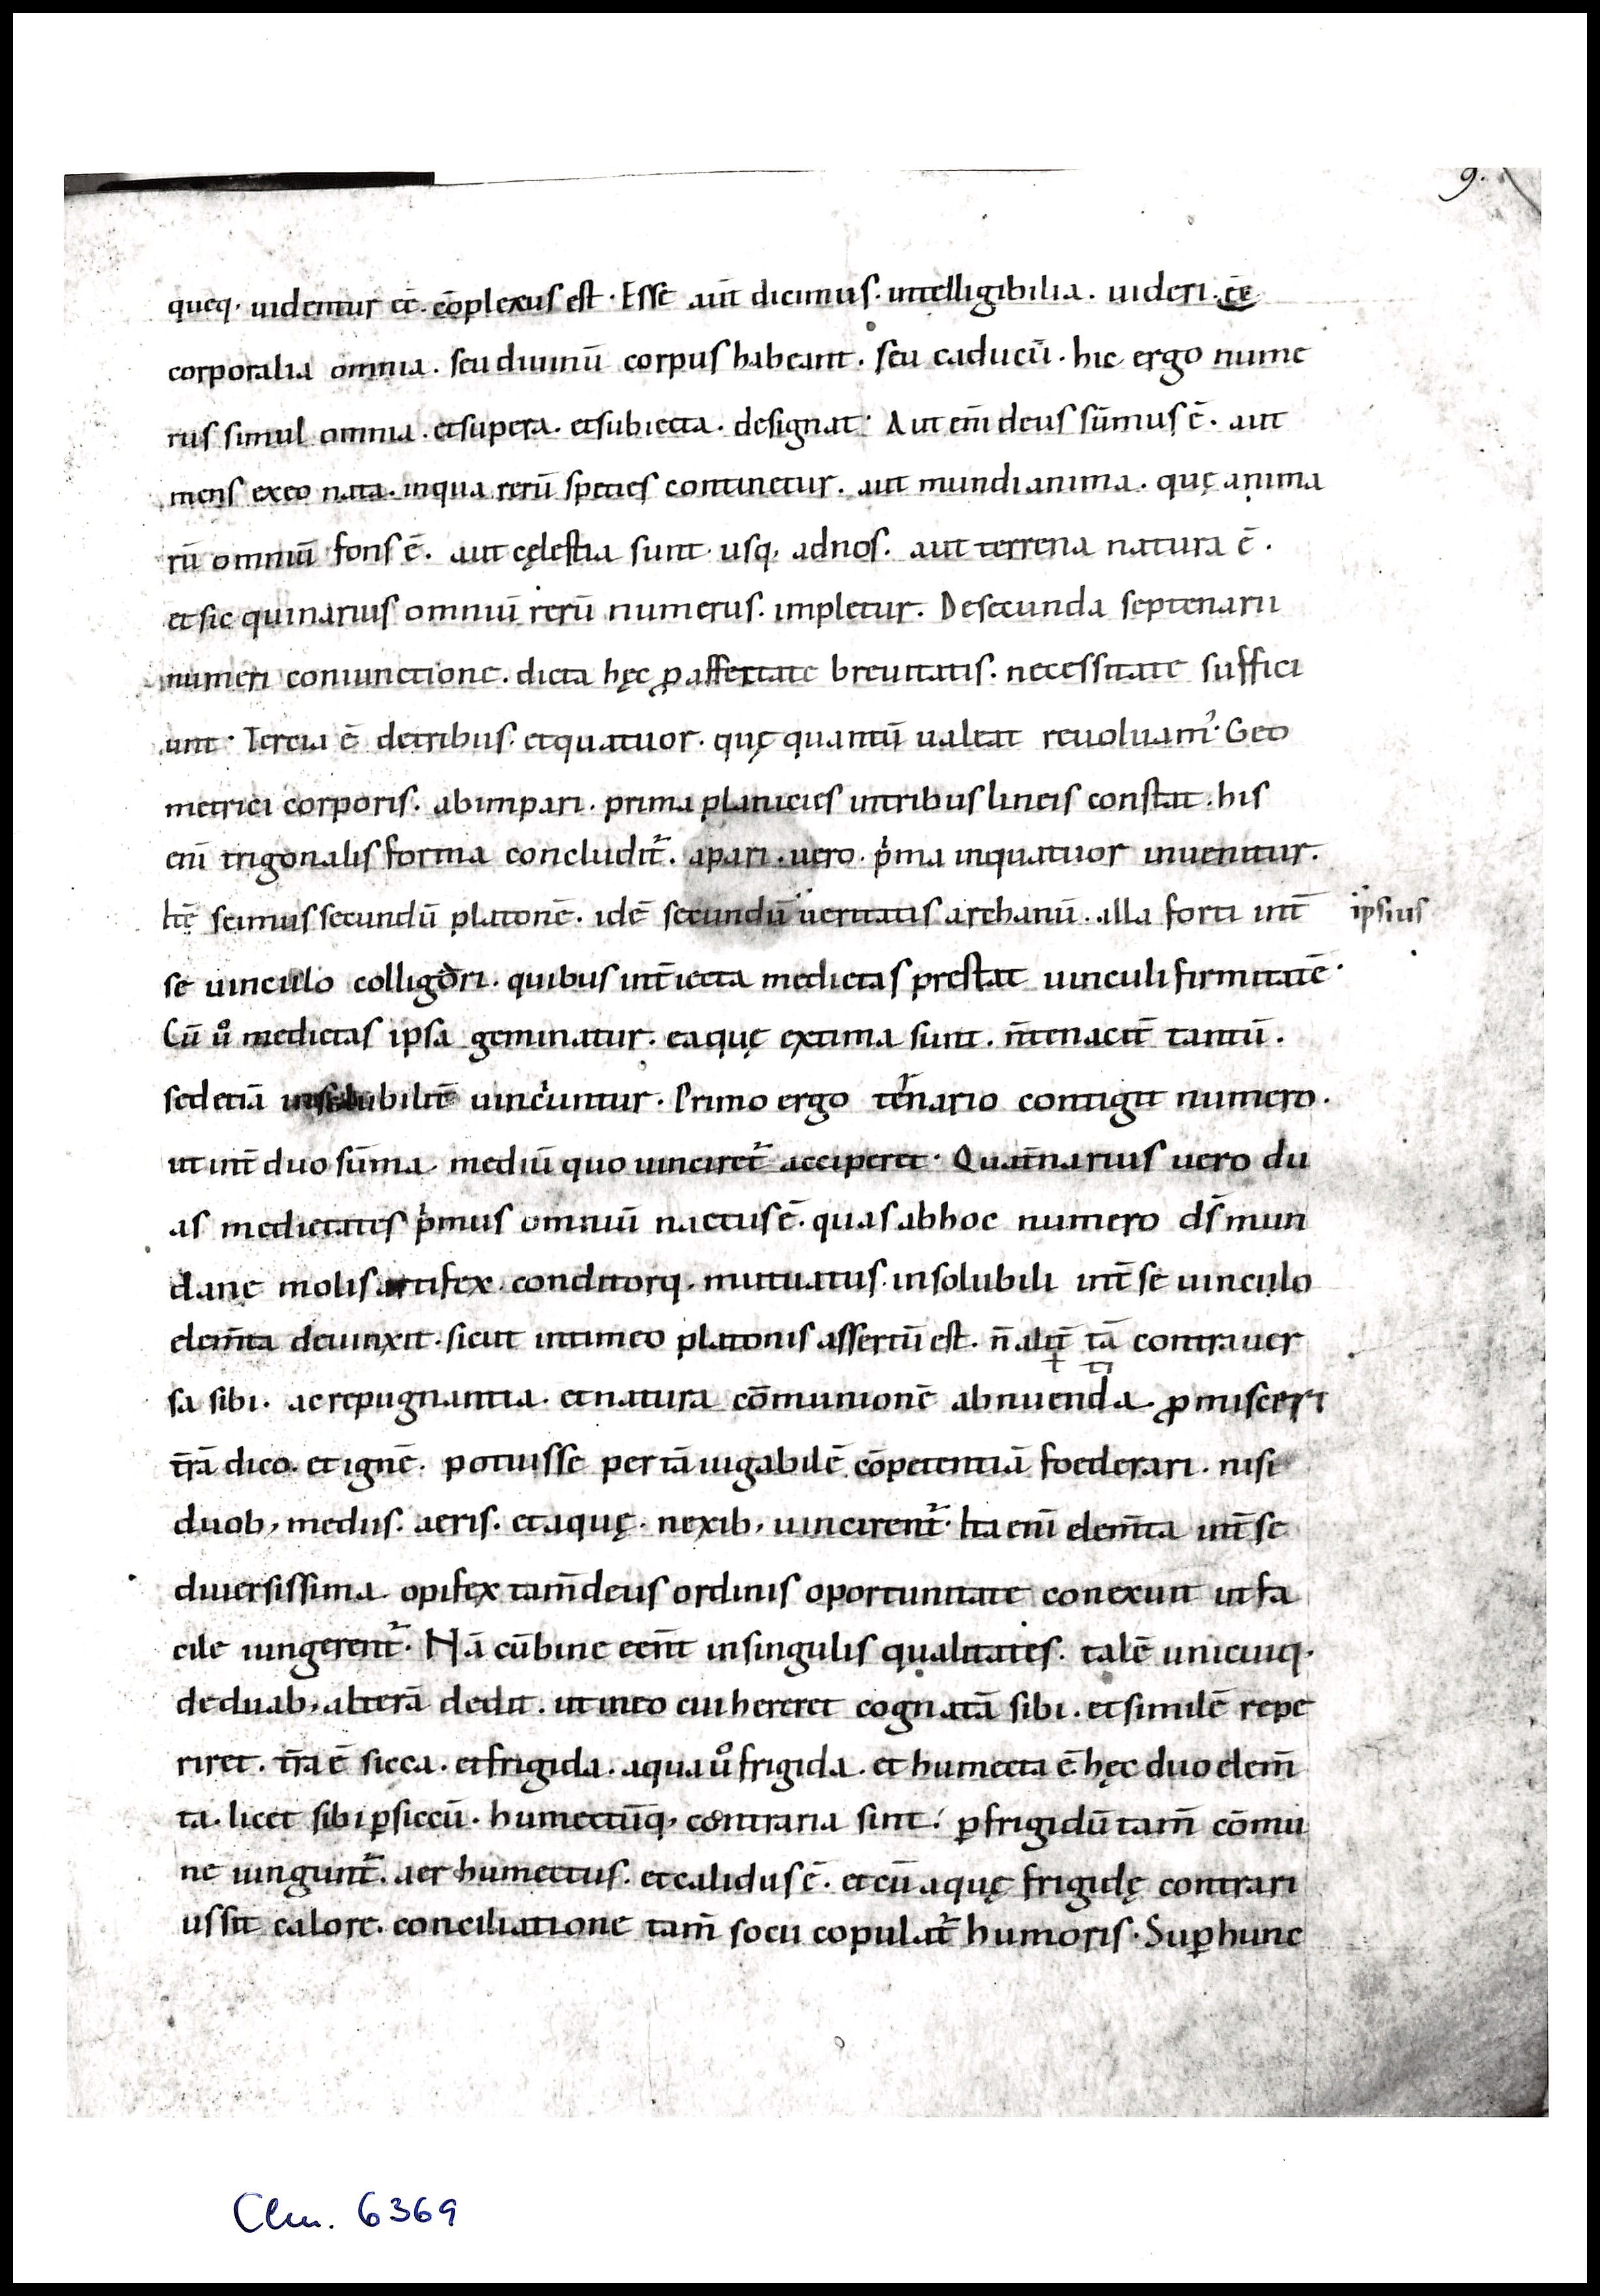 9.
queq· uidentur eē· cōplexus est · Esse aut̄ dicimus · intelligibilia · uideri · eē
corporalia omnia · seu diuinū corpus habeant · seu caducū · hic ergo nume
rus simul omnia · et supera · et subiecta · designat · Aut eni̅ deus sūmus ē · aut
mens ex eo nata · inqua rerū species continetur · aut mundi anima · quę anima
rū omniū fons ē · aut cęlestia sunt · usq, adnos · aut terrena natura ē ·
et sic quinarius omniū rerū numerus · impletur · De secunda septenarii
numeri coniunctione · dicta hęc ꝓ affectate breuitatis · necessitate suffici
unt · Tercia ē detribus · et quatuor · quę quantū ualeat reuoluam᾽ · Geo
metrici corporis · ab impari · prima planicies intribus lineis constat · his
eni̅ trigonalis forma concludit᷑ · apari · uero · p̍ma inquatuor inuenitur ·
Itē scimus secundū platonē · idē secundū ueritatis archanū · illa forti int̄ ipsius
se uinculo colligari · quibus int̄iecta medietas prestat uinculi firmitatē ·
Cū uº medietas ipsa geminatur · ea quę extima sunt · n̄ tenacit̄ tantū ·
sed etiā insolubilit̄ uinciuntur · Primo ergo t̄nario contigit numero ·
ut int̄ duo sūma · mediū quo uinciret᷑ acciperet · Quat̄narius uero du
as medietates p̍mus omniū nactus ē · quas ab hoc numero ds̄ mun
danę molis artifex · conditorq, mutuatus · insolubili int̄ se uinculo
elem̄ta deuinxit · sicut intimeo platonis assertū est · n̄ alit̄ tā contrauer
sa sibi · ac repugnantia · et natura cōmunionē abnuenda · ꝓmisceri
t̄rā dico · et ignē · potuisse per tā iugabilē cōpetentiā foederari · nisi
duob, mediis · aeris · et aquę · nexib, uincirent᷑ · Ita eni̅ elem̄ta int̄ se
diuersissima · opifex tam̄ deus ordinis oportunitate conexuit ut fa
cile iungerent᷑ · Nā cū bine eēnt insingulis qualitates · talē unicuiq,
deduab, alterā dedit · ut in eo cui hereret cognatā sibi · et similē repe
riret · t̄ra ē sicca · et frigida · aqua uº frigida · et humecta ē hęc duo elem̄
ta · licet sibi ꝑ siccū · humectūq, contraria sint · ꝑ frigidū tam̄ cōmu
ne iungunt᷑ · aer humectus · et calidus ē · et cū aquę frigidę contrari
us sit calore · conciliatione tam̄ socii copulat᷑ humoris · Suꝑ hunc
Clm. 6369